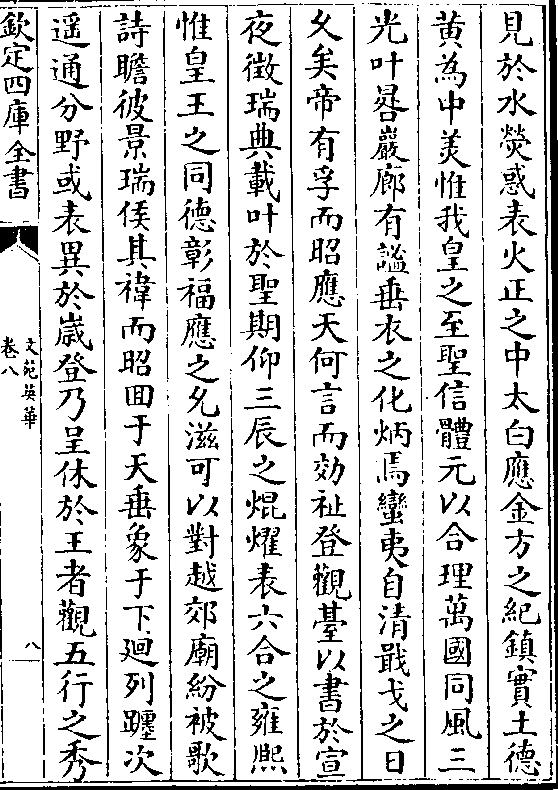 見於水熒惑表火正之中太白應金方之紀鎮實土德
黄為中美惟我皇之至聖信體元以合理萬國同風三
光叶晷巖廊有謐垂衣之化炳焉蠻夷自清戢戈之日
久矣帝有孚而昭應天何言而効祉登觀臺以書於宣
夜徴瑞典載叶於聖期仰三辰之焜燿表六合之雍熈
惟皇王之同德彰福應之允滋可以對越郊廟紛被歌
詩瞻彼景瑞俟其禕而昭囬于天垂象于下廻列躔次
遥通分野或表異於歳登乃呈休於王者觀五行之秀
欽定四庫全書
文苑英華
卷八
八